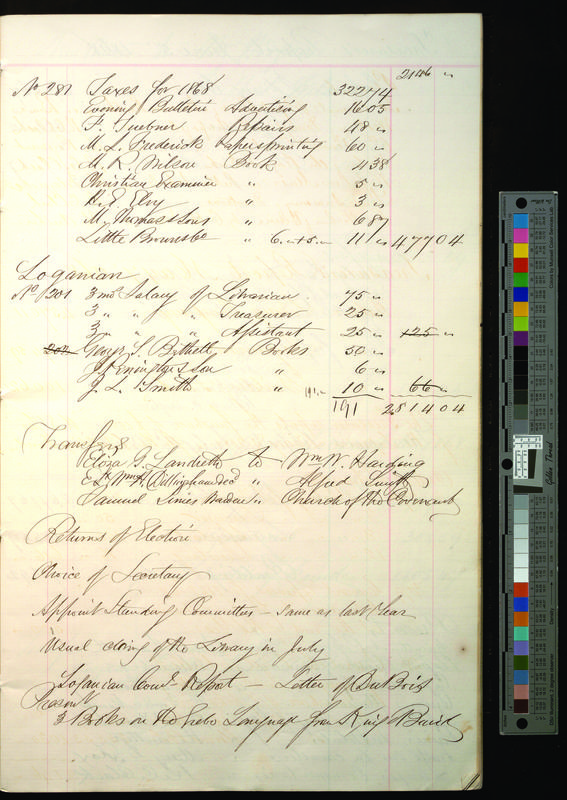 2146 "
No 281 Taxes for 1868 322 74
Evening Bulletin Advertising 16 05
F. Tuebner Repairs 48 "
M. L. Frederick Papers printing 60 "
M. R. Wilson Book 4 38
Christian Examiner " 5 "
R. E. Elvy " 3 "
M. Thomas & Sons " 6 87
Little Brown & Co " 6.. + 5.. 11 " 477 04
Loganian
No 201 3 mos Salary of Librarian 75 "
3 " " " Treasurer 25 "
3 " " " Assistant 25 " 125 "
202 S. Books 50 "
" 6 "
J. L. Smith " 191 .. 10 " 66 "
191 2514 04
Transfers
Eliza G. Landreth to Wm W. Harding
Ex Wm Cullingham decd " Alfred
Samuel " Church of the Covenant
Returns of Election
Choice of Secretary
Appoint Standing Committees – same as last Year
Usual closing of the Library in July
Loganian Comee Report – Letter of Du Bois
3 Books on the Language from